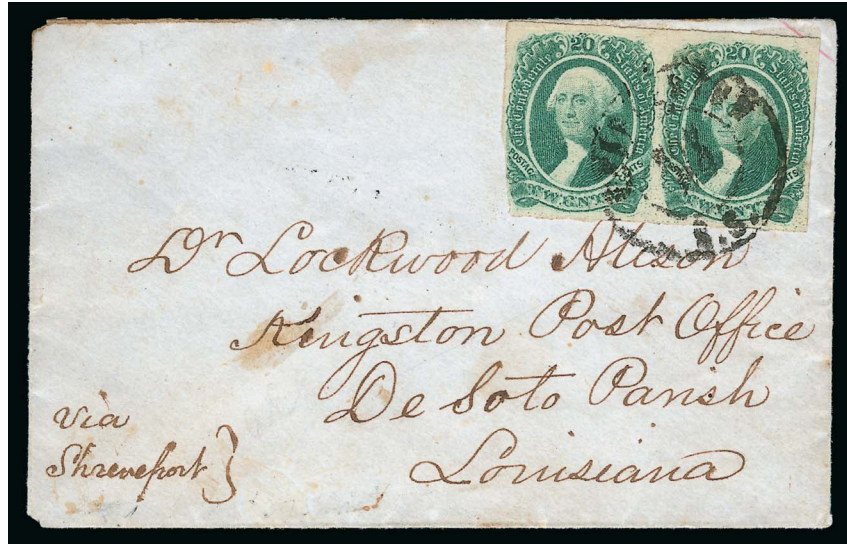 20 20
The Confederate States of America
The Confederate States of America
POSTAGE CENTS
TWENTY
S.C.
Dr Lockwood Alison
Kingston Post Office
De Soto Parish
Louisiana
via
Shreveport